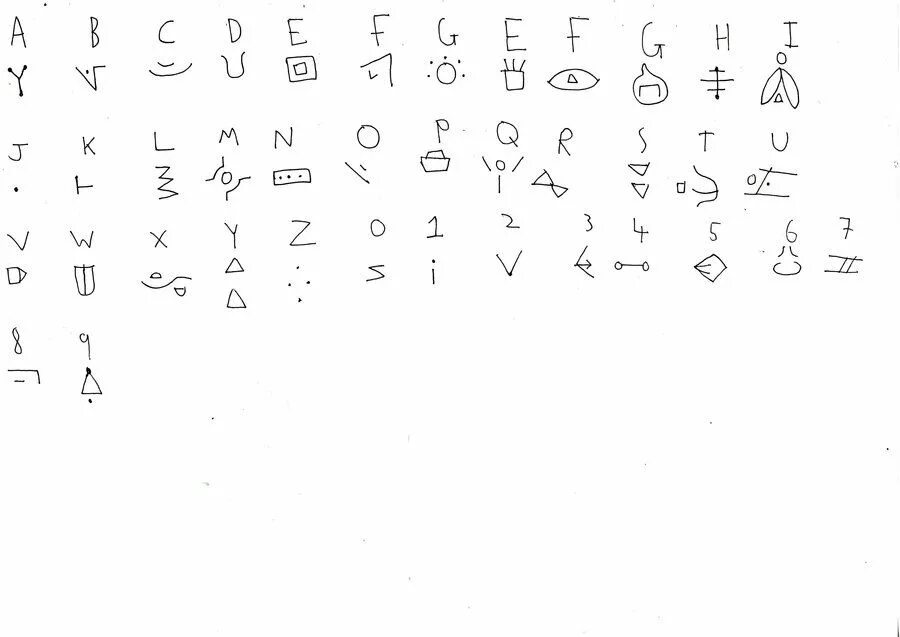 A B C D E F G E F G H I
J K L M N O P Q R S T U
V W X Y Z 0 1 2 3 4 5 6 7
8 9